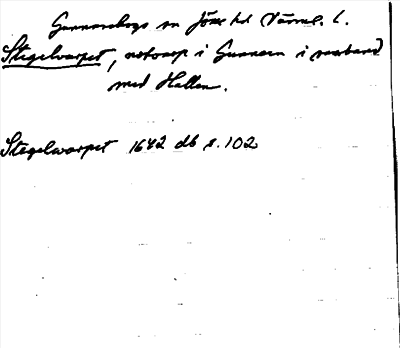 Gunnarskogs sn Jösse hd Värml. l.
Stegelvarpet, notvarp i Gunnern i samband
med Hallen.
Stegelwarpet 1642 db s. 102